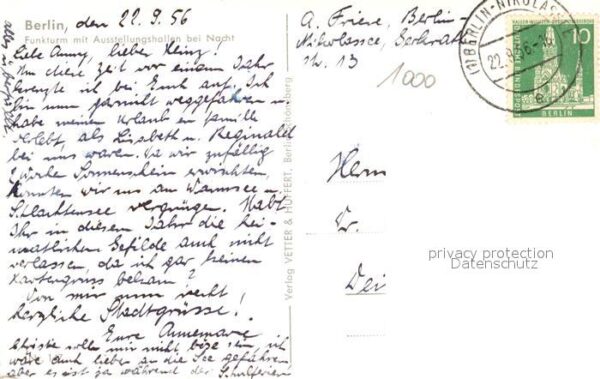 Berlin, den 22.9.56
Funkturm mit Ausstellungshallen bei Nacht
Liebe Anny, lieber Heinz!
Um diese Zeit vor einem Jahr
kreuzte ich bei Euch auf. Ich
bin nun garnicht weggefahren u.
habe meinen Urlaub en famille
verlebt, als Lisbeth u. Reginald
bei uns waren. Da wir zufällig
2 Woche Sonnenschein erwischten,
konnten wir uns am Wannsee u.
Schlachtensee vergnügen. Habt
Ihr in diesem Jahr die hei-
matlichen Gefilde auch nicht
verlassen, da ich gar keinen
Kartengruss bekam?
Von mir nun recht
herzliche Stadtgrüsse!
Eure Annemarie
sollen mir nicht böse sein, ich
wäre auch lieber an die See gefahren
aber es ist ja während der Schulferien
alles
Verlag VETTER & HUFFERT, Berlin-Schöneberg
A. Friere, Berlin-
Nikolassee,
Str. 13
1000
BERLIN-NIKOLASSEE
22.9.56
10
BERLIN
Herrn
Dr.
Dei
privacy protection
Datenschutz